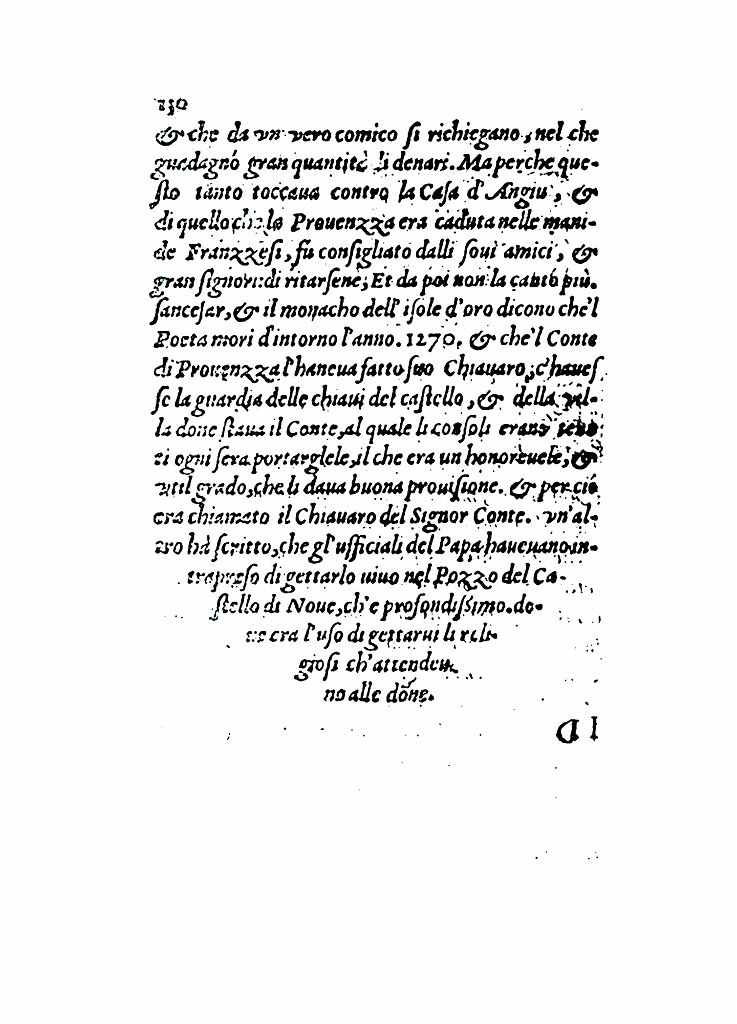 130
& che da vn vero comico ſi richiegano, nel che
guadagnò gran quantità di denari. Ma perche que-
ſto tanto toccaua contro la Caſa d'Angiu, &
di quello che la Prouenzza era caduta nelle mani-
de Franzzeſi, fù conſigliato dalli ſoui amici, &
gran ſignori: di ritarſene, Et da poi non la cantò più.
ſanceſar, & il monacho dell' iſole d'oro dicono che'l
Poeta mori d'intorno l'anno. 1270, & che'l Conte
di Prouenzza l'haneua fatto ſuo Chiauaro, c'haueſ
ſe la guardia delle chiaui del caſtello, & della vil-
la doue ſtaua il Conte, al quale li conſoli erano tenu
ti ogni ſera portarglele, il che era un honoreuele, &
vtil grado, che li daua buona prouiſione. & per ciò
era chiamato il Chiauaro del Signor Conte. vn'al-
tro hà ſcritto, che gl'ufficiali del Papa haueuano in-
trapreſo di gettarlo uiuo nel Pozzo del Ca-
ſtello di Noue, ch'e profondiſſimo. do-
ue era l'uſo di gettarui li reli-
gioſi ch'attendeu
no alle dõne.
I D